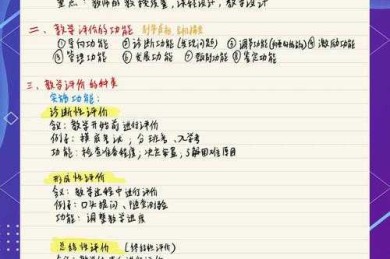 重点：教师的教授质量，课程设计，教学设计
二、教学评价的功能
①导向功能 ②诊断功能(发现问题) ③调节功能 ④激励功能
⑤管理功能 ⑥发展功能 ⑦ 功能 ⑧鉴定功能
三、教学评价的种类
实施功能：
诊断性评价
含义：教学开始前进行评价
例子：摸底考试，分班考、入学考
功能：检查准备程度，决定安置，了解困难原因
形成性评价
含义：教学过程中进行评价
例子：口头提问、随堂测验
功能：调整教学进度
总结性评价 (终结性评价)